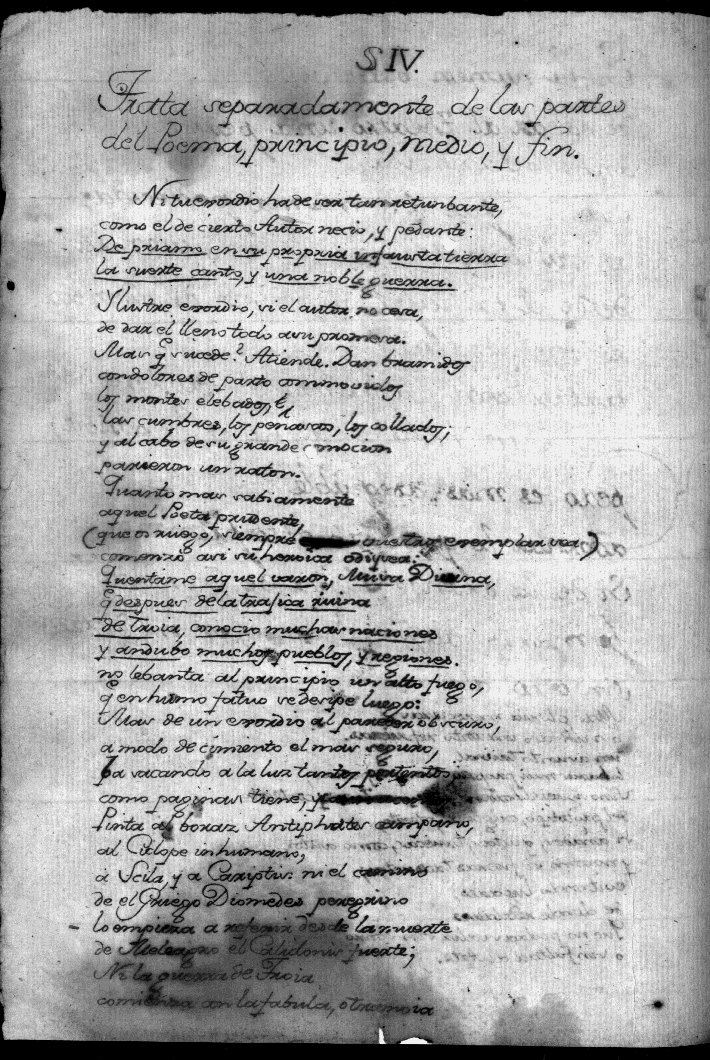 § IV.
Trata separadamente de las partes
del Poema, principio, medio, y fin.
Ni tu exordio ha de ser tan retunbante,
como el de cierto Autor necio, y pedante:
De priamo en su propria infausta tierra
la suerte canto, y una noble guerra.
Ylustre exordio, si el autor no cesa,
de dar el lleno todo a su promesa.
Mas q̃ sucede? Atiende. Dan bramidos
con dolores de parto commovidos
los montes elebados,
las cumbres, los peñascos, los collados;
y al cabo de su grande comocion
parieron un raton.
Quanto mas sabiamente
aquel Poeta prudente,
(que os ruego, siempre vuestro exemplar sea)
comenzó asi su heroica odisea:
Quentame aquel varon, Musa Divina,
q̃ despues de la trafica ruina
de Troia, conocio muchas naciones
y andubo muchos pueblos, y regiones.
no lebanta al principio un alto fuego,
q̃ en humo fatuo se desipe luego:
Mas de un exordio al parecer obscuro,
a modo de cimiento el mas seguro,
ba sacando a la luz tantos portentos
como paginas tiene, y
Pinta al boraz Antiphates campano,
al Ciclope inhumano,
a Scila, y a Cariptis ni el camino
de el Griego Diomedes peregrino
lo empieza a referir desde la muerte
de Meleagro el Calidonio fuerte;
Ni la guerra de Troia
comienza con la fabula,